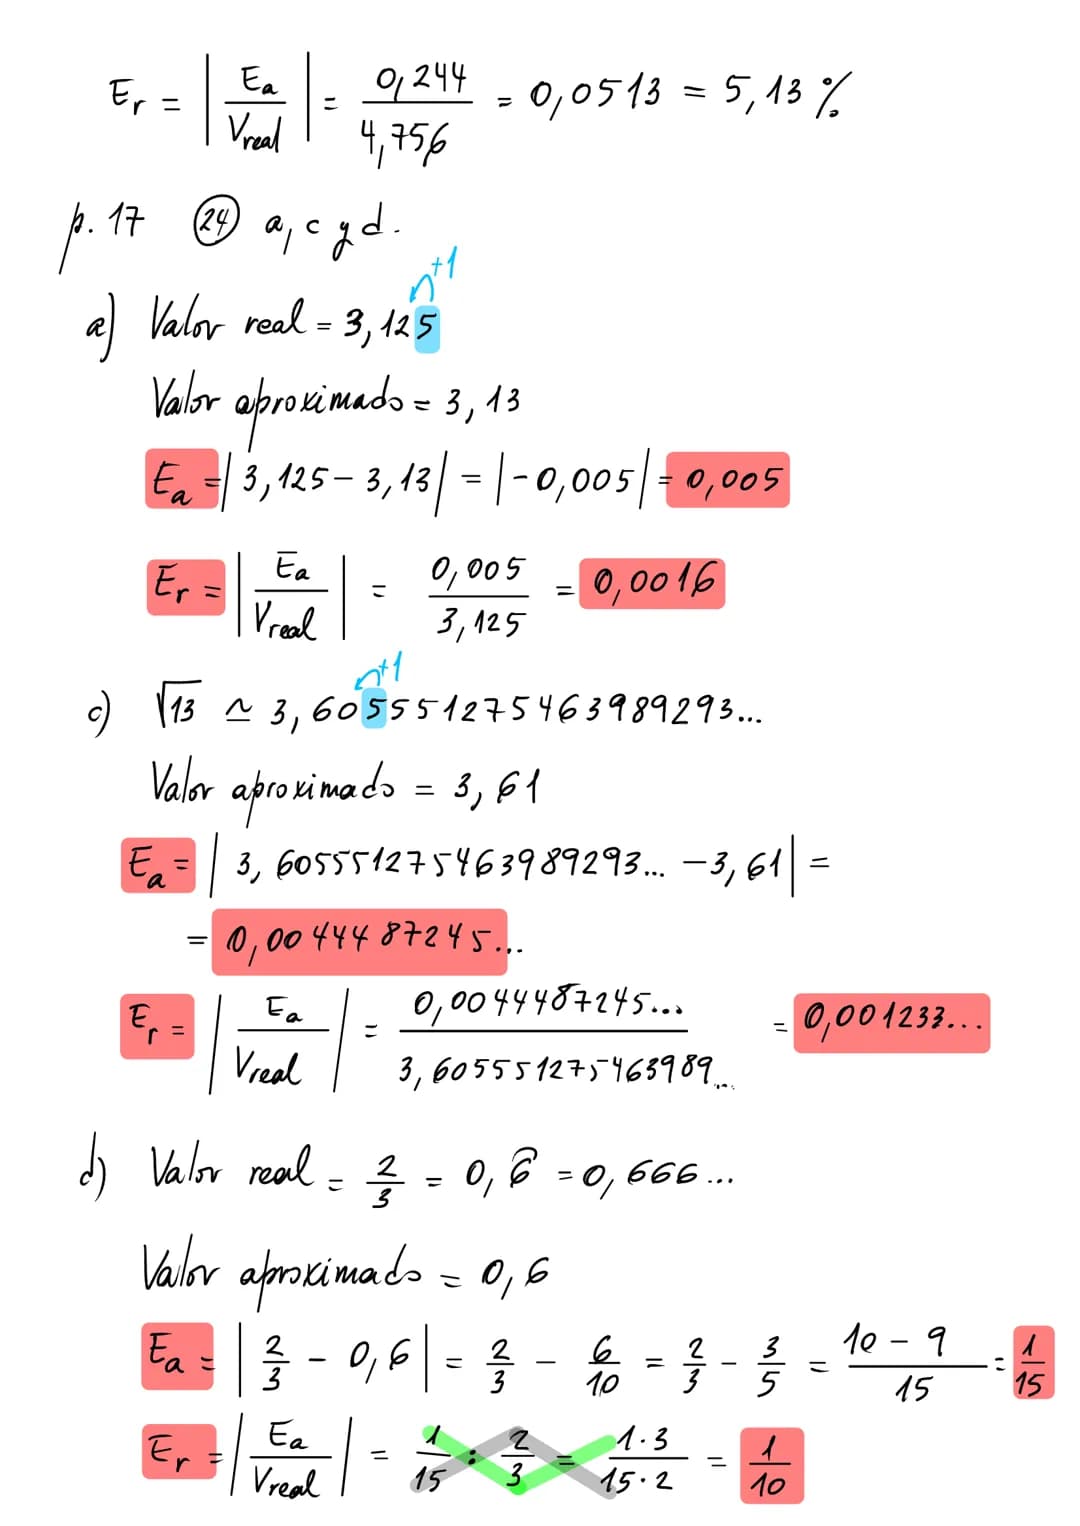 Er = | Ea / Vreal | = 0,244 / 4,756 = 0,0513 = 5,13 %
p. 17 (24) a, c y d.
+1
a) Valor real = 3,125
Valor aproximado = 3,13
Ea = | 3,125 - 3,13 | = | -0,005 | = 0,005
Er = | Ea / Vreal | = 0,005 / 3,125 = 0,0016
+1
c) √13 ≃ 3,605551275463989293...
Valor aproximado = 3,61
Ea = | 3,605551275463989293... - 3,61 | =
= 0,00444487245...
Er = | Ea / Vreal | = 0,00444487245... / 3,605551275463989... = 0,001233...
d) Valor real = 2/3 = 0,6̂ = 0,666...
Valor aproximado = 0,6
Ea = | 2/3 - 0,6 | = 2/3 - 6/10 = 2/3 - 3/5 = 10 - 9 / 15 = 1/15
Er = | Ea / Vreal | = 1/15 : 2/3 = 1·3 / 15·2 = 1/10